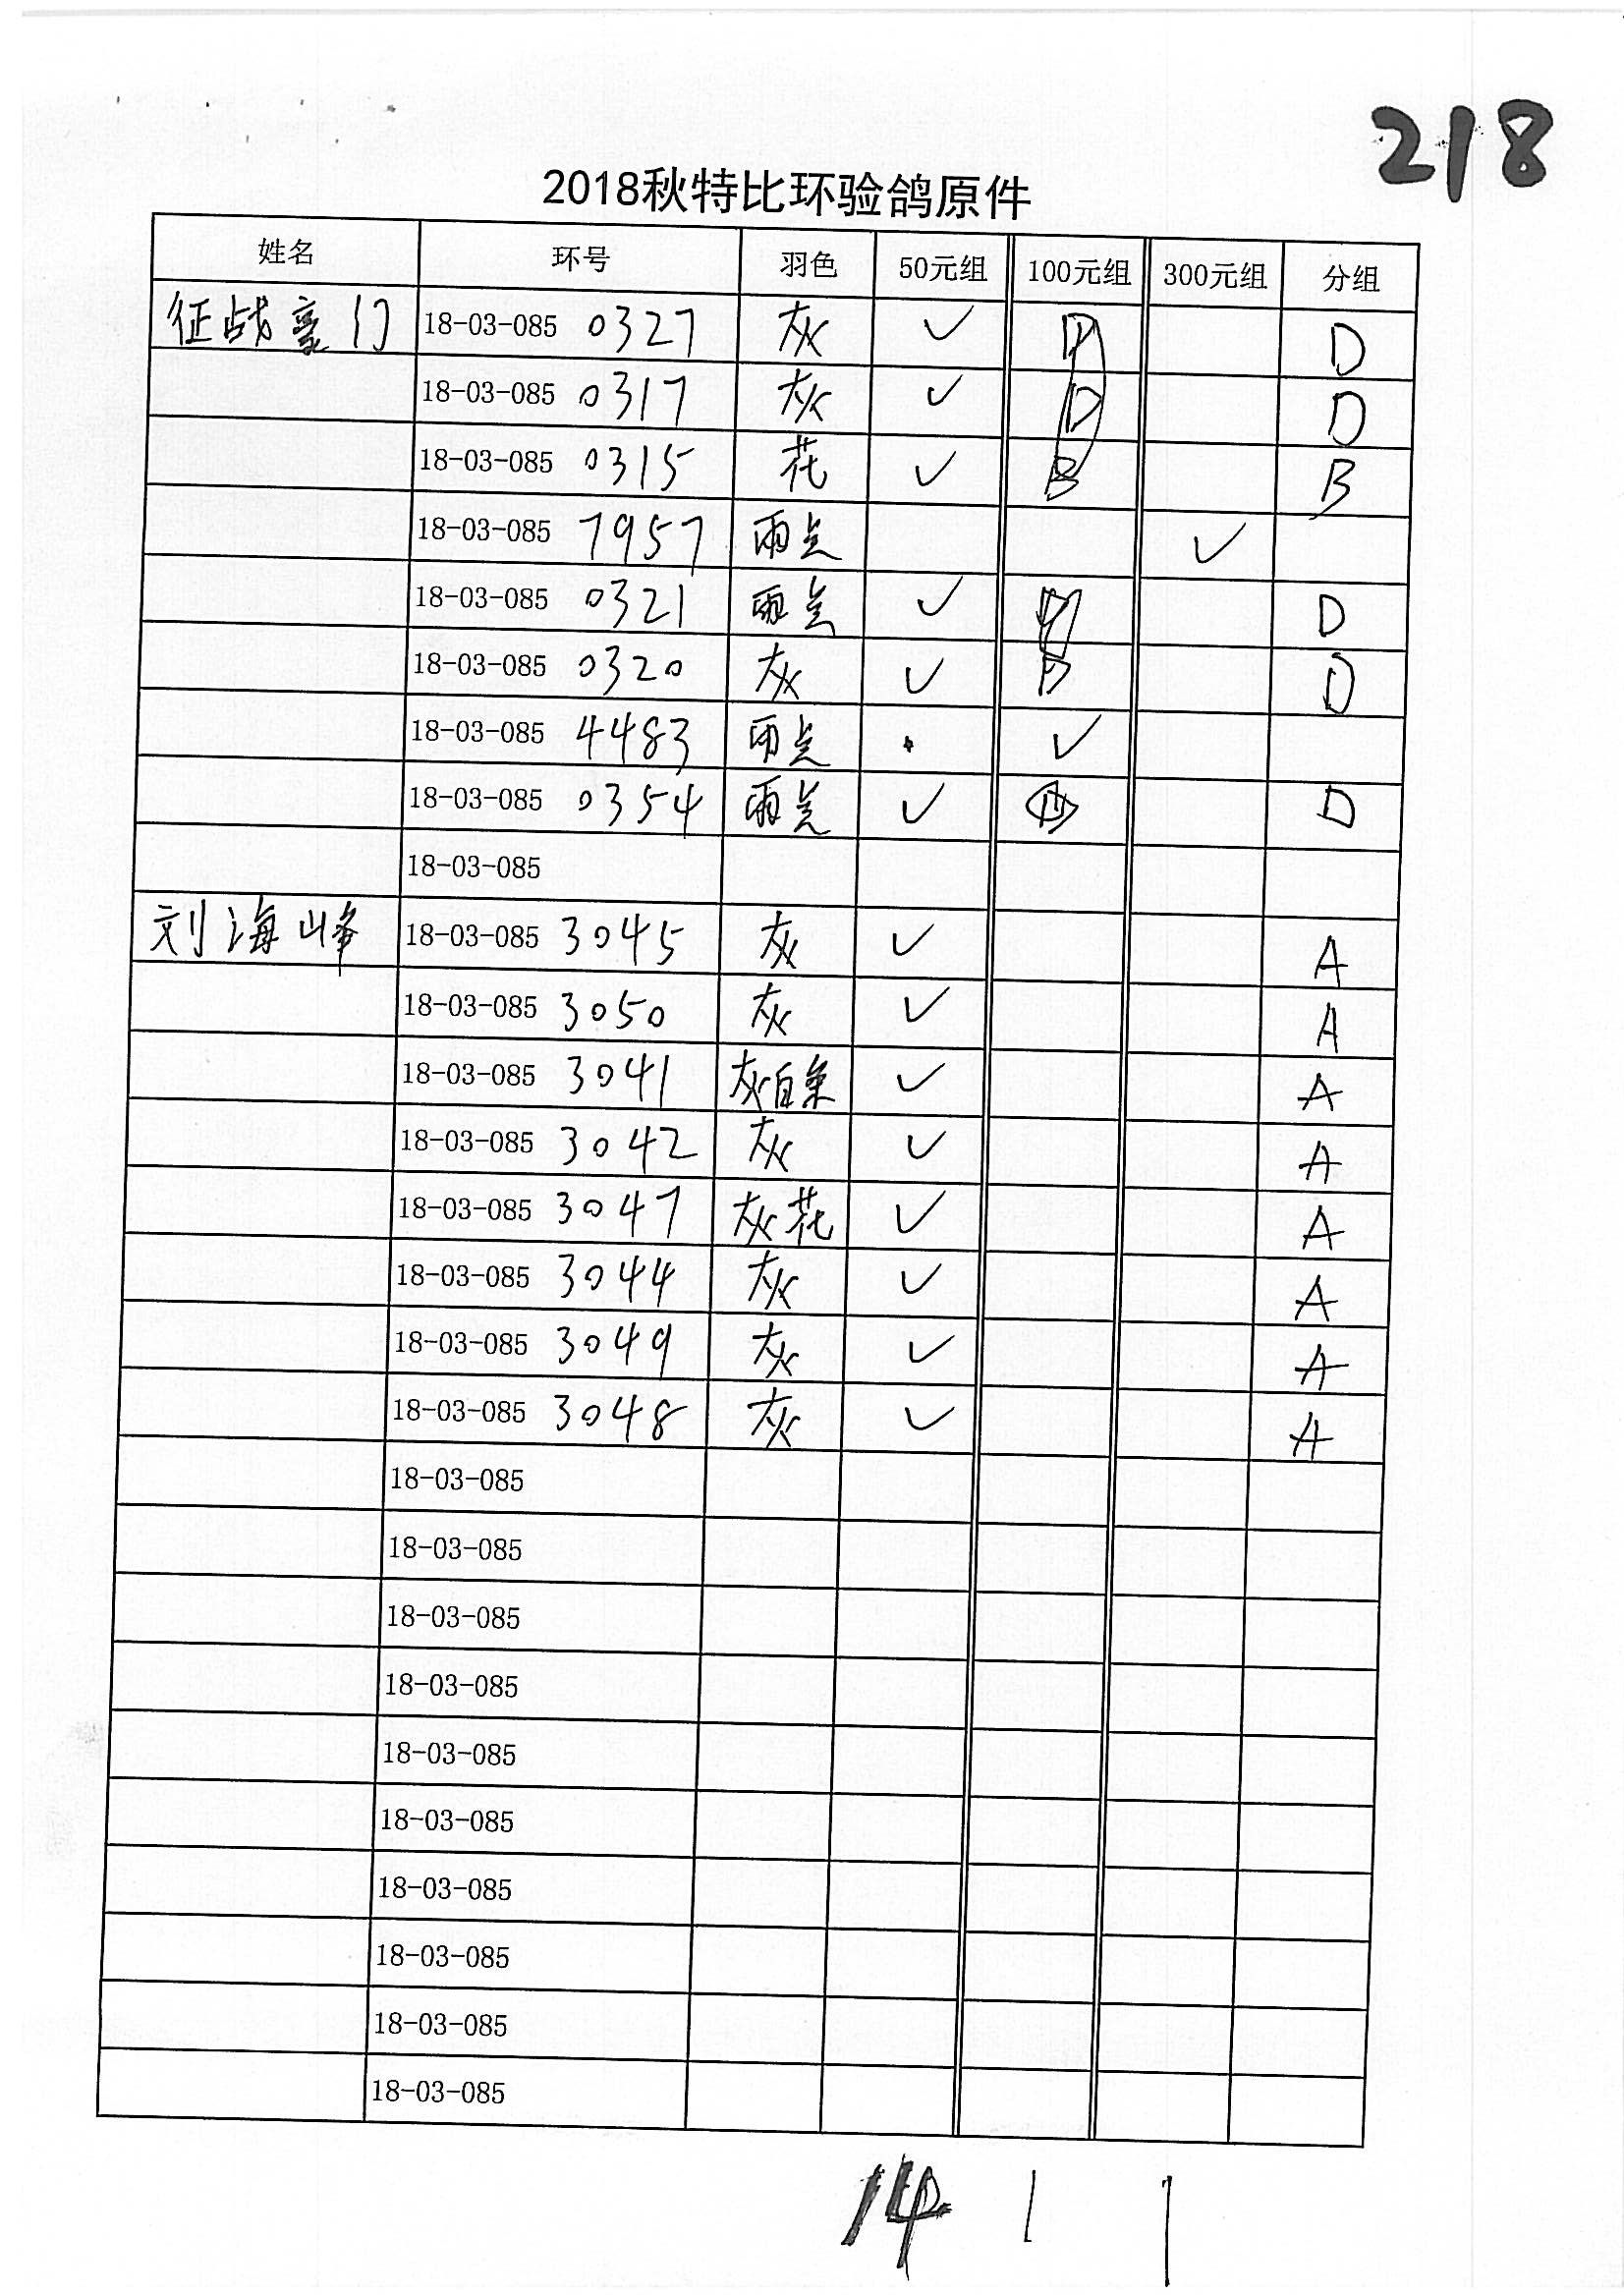 218
2018秋特比环验鸽原件
姓名 环号 羽色 50元组 100元组 300元组 分组
征战豪门 18-03-085 0327 灰 ✓ D D
18-03-085 0317 灰 ✓ D D
18-03-085 0315 花 ✓ B B
18-03-085 7957 雨点 ✓
18-03-085 0321 雨点 ✓ D
18-03-085 0320 灰 ✓ D
18-03-085 4483 雨点 ✓
18-03-085 0354 雨点 ✓ D D
18-03-085
刘海峰 18-03-085 3045 灰 ✓ A
18-03-085 3050 灰 ✓ A
18-03-085 3041 灰白条 ✓ A
18-03-085 3042 灰 ✓ A
18-03-085 3047 灰花 ✓ A
18-03-085 3044 灰 ✓ A
18-03-085 3049 灰 ✓ A
18-03-085 3048 灰 ✓ A
18-03-085
18-03-085
18-03-085
18-03-085
18-03-085
18-03-085
18-03-085
18-03-085
18-03-085
18-03-085
14 1 1